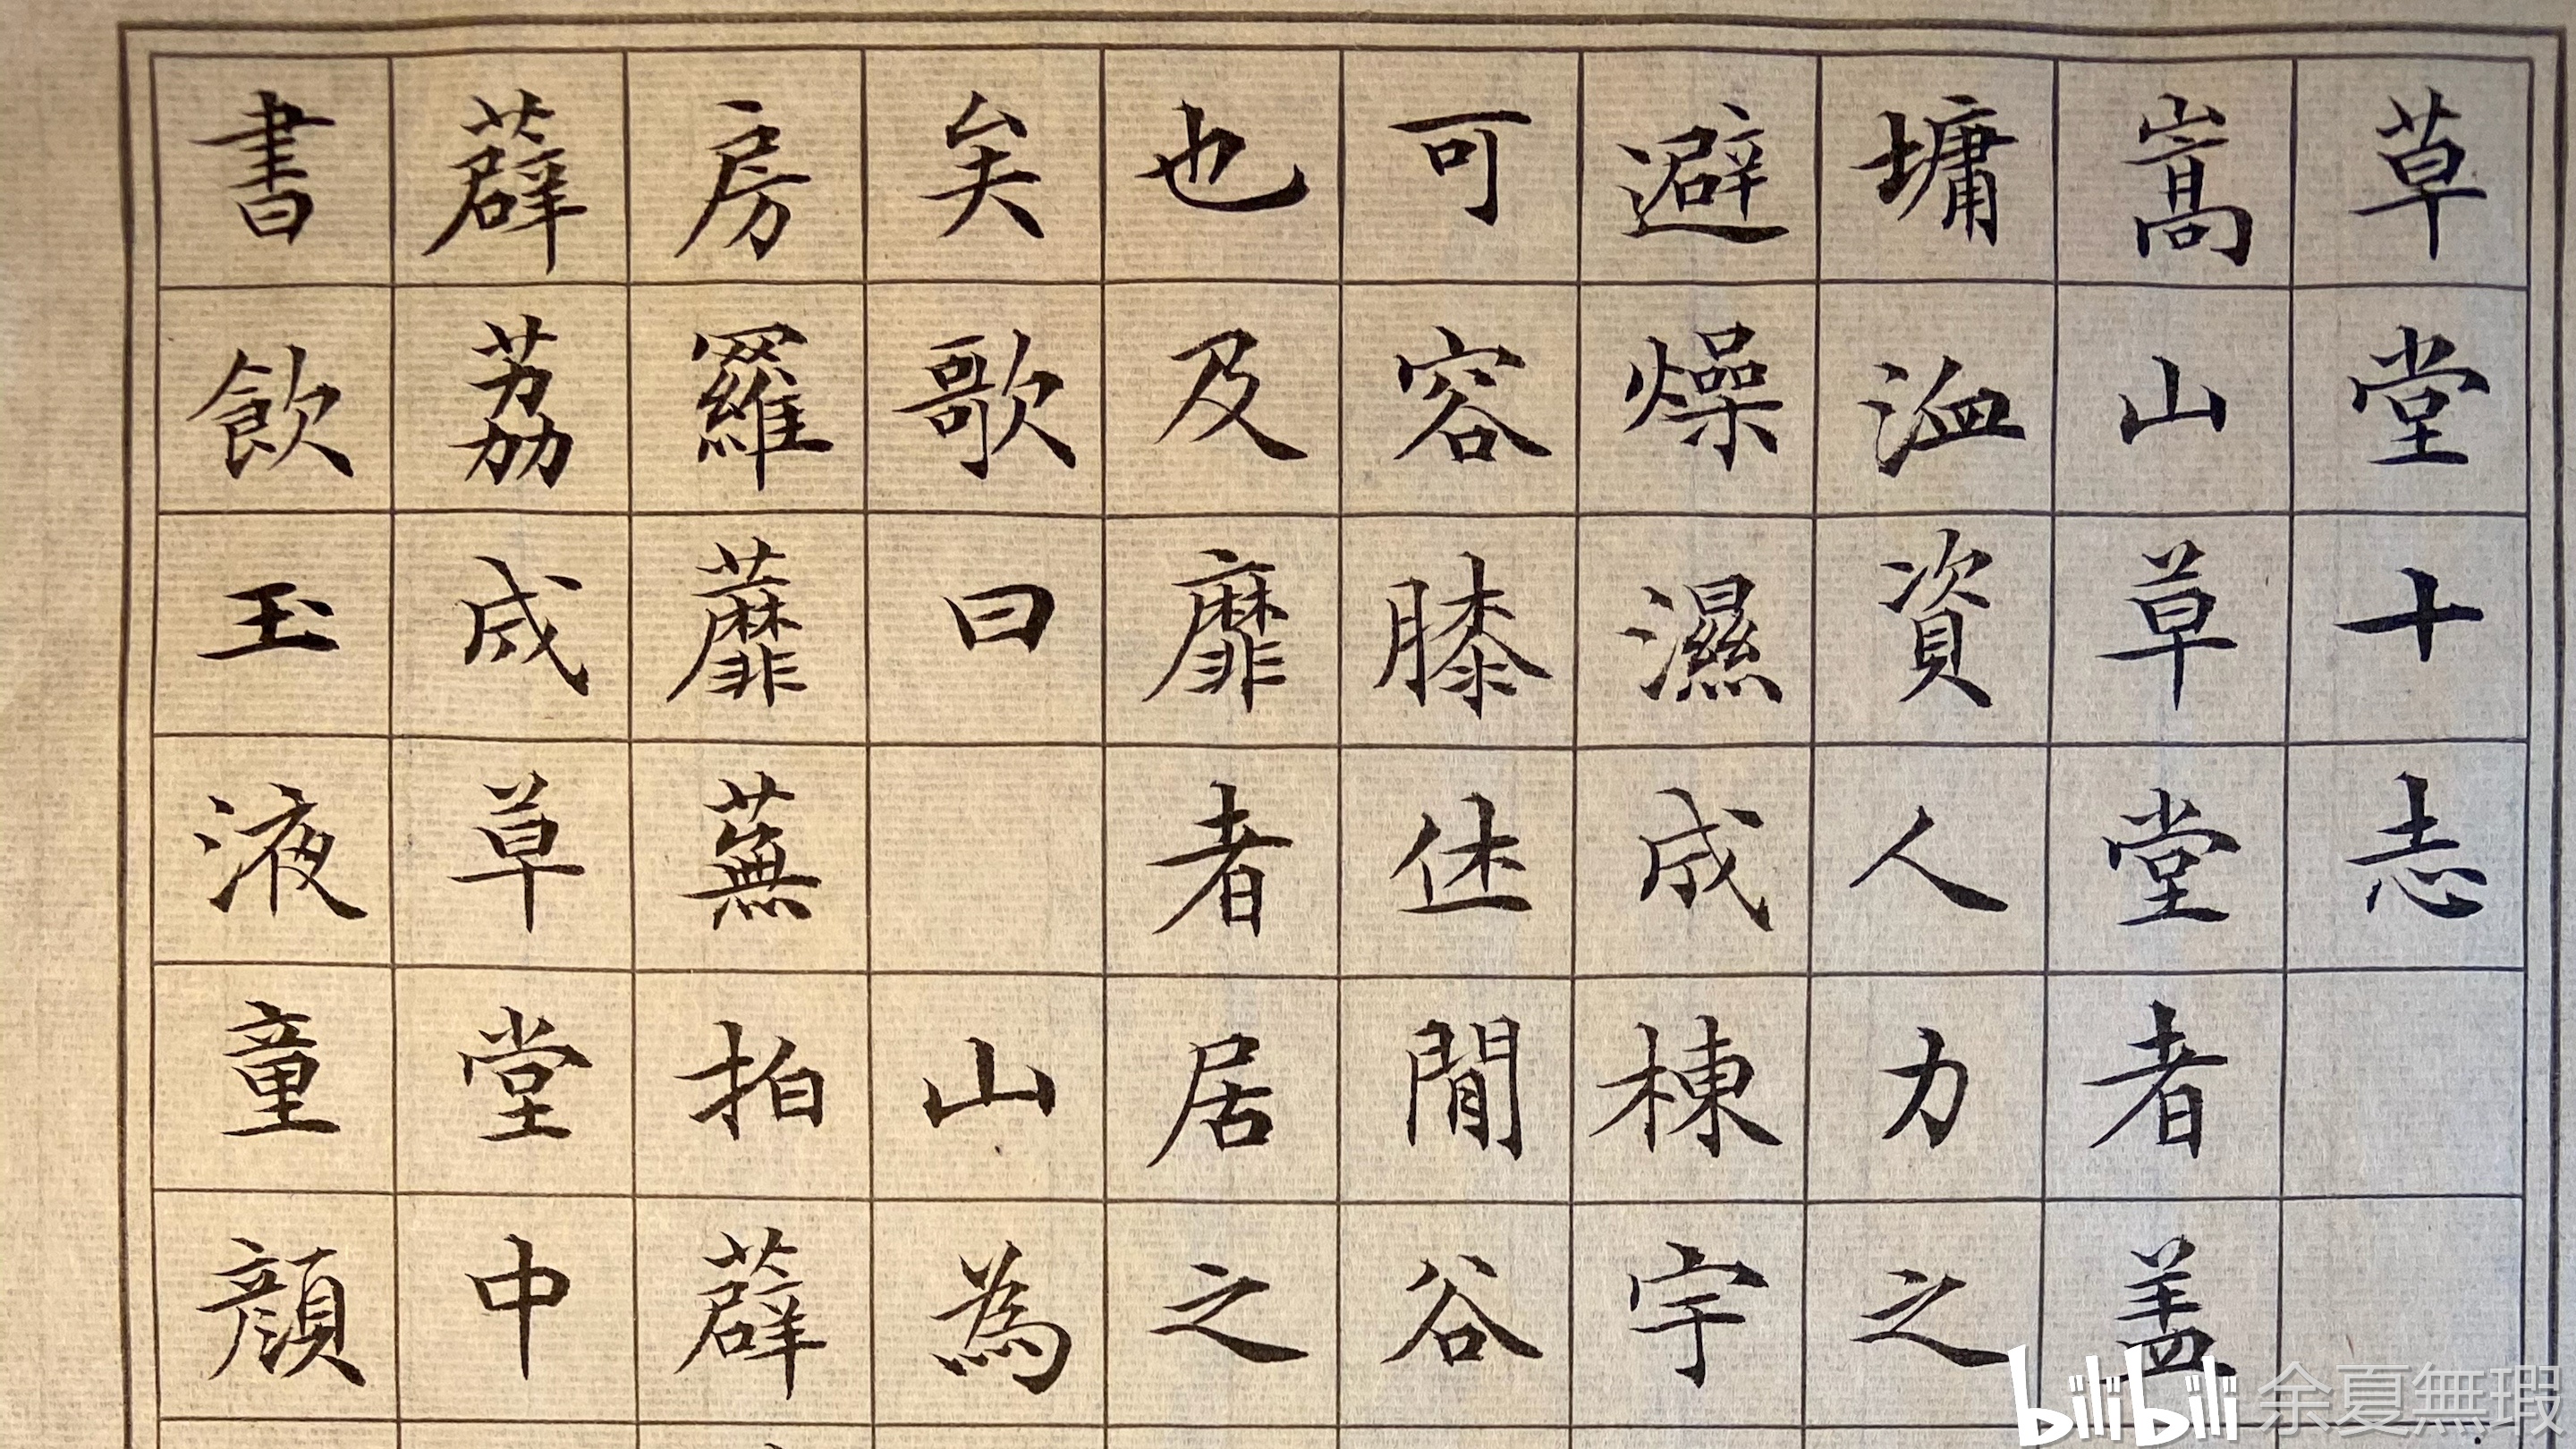 草堂十志
嵩山草堂者盖
墉洫資人力之
避燥濕成棟宇
可容膝休閒谷
也及靡者居之
矣歌曰 山為
房羅蘼蕪拍薜
薜荔成草堂中
書飲玉液童顏
bilibili 余夏無瑕